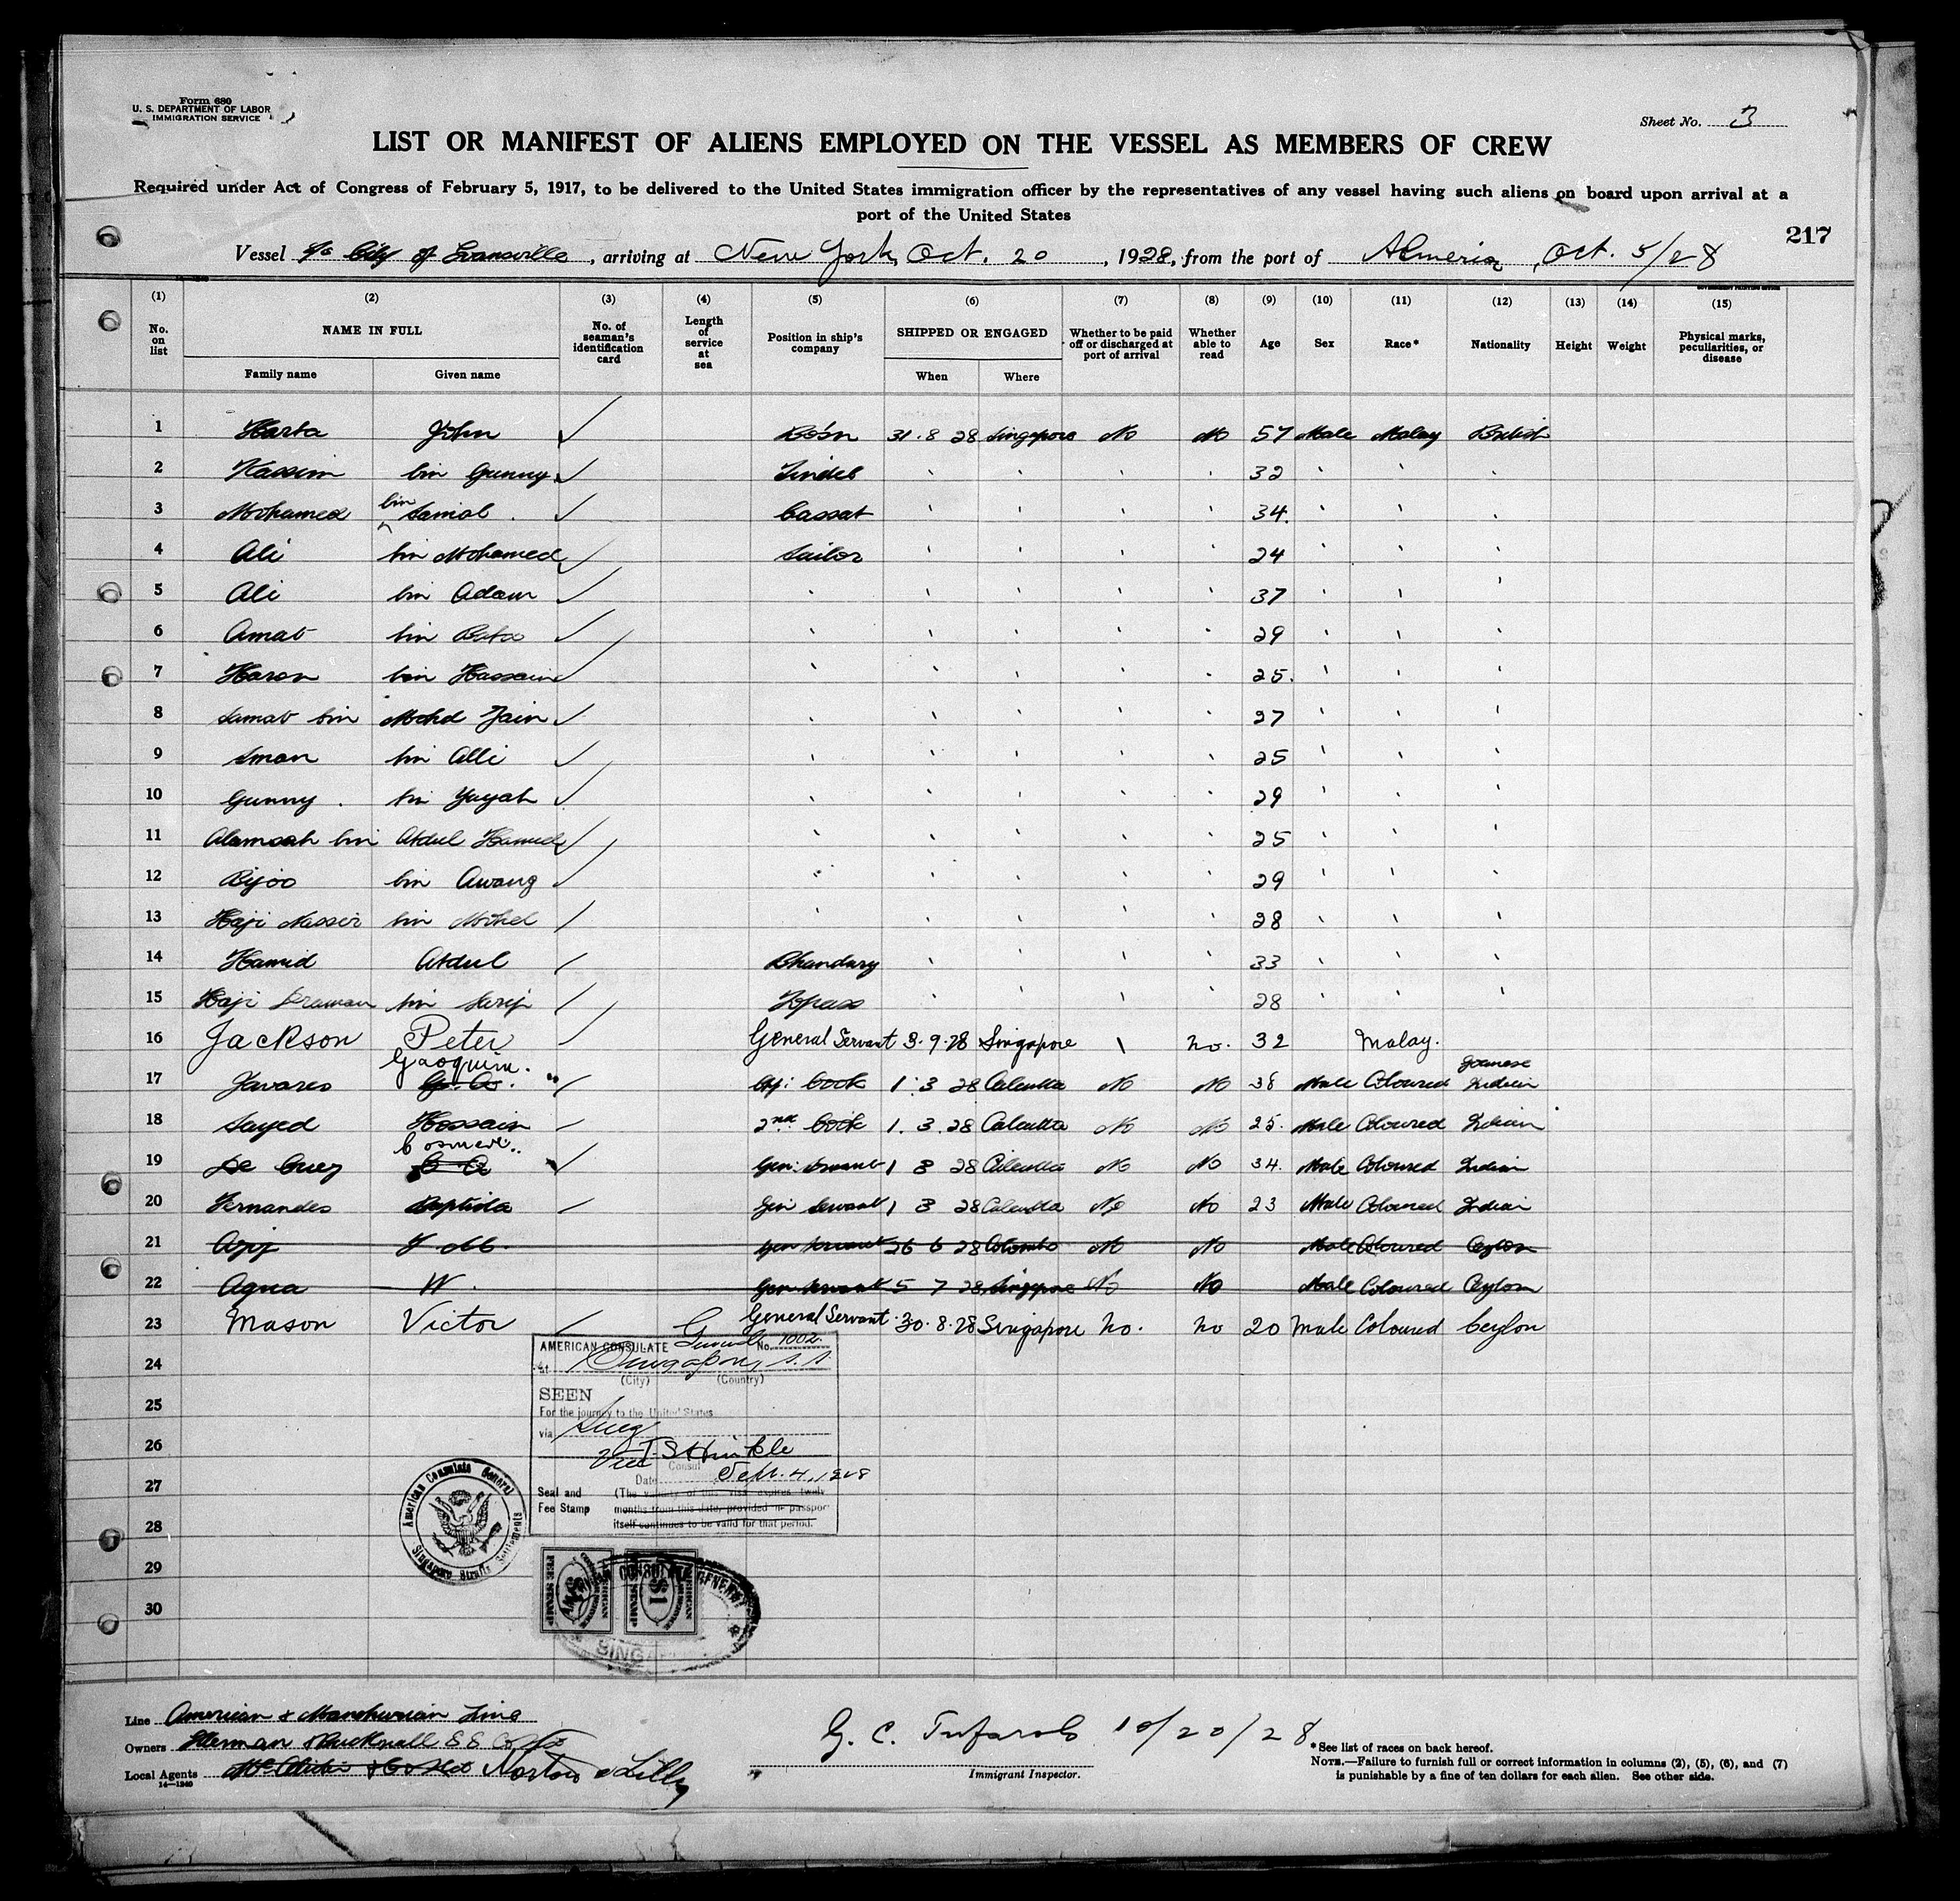 Form 680
U. S. DEPARTMENT OF LABOR
IMMIGRATION SERVICE
Sheet No. 3
LIST OR MANIFEST OF ALIENS EMPLOYED ON THE VESSEL AS MEMBERS OF CREW
Required under Act of Congress of February 5, 1917, to be delivered to the United States immigration officer by the representatives of any vessel having such aliens on board upon arrival at a
port of the United States
217
Vessel S/S City of Evansville, arriving at New York, Oct. 20, 1928, from the port of Almeria, Oct. 5/28
(1) (2) (3) (4) (5) (6) (7) (8) (9) (10) (11) (12) (13) (14) (15)
No. on list NAME IN FULL No. of seaman's identification card Length of service at sea Position in ship's company SHIPPED OR ENGAGED Whether to be paid off or discharged at port of arrival Whether able to read Age Sex Race* Nationality Height Weight Physical marks, peculiarities, or disease
Family name Given name When Where
1 Harta John Bo'sn 31.8 28 Singapore No No 57 Male Malay British
2 Kassim bin Gunny Tindel 32
3 Mohamed bin Samol Cassab 34.
4 Ali bin Mohamed Sailor 24
5 Ali bin Adam 37
6 Amat bin 29
7 Haron bin Hassain 25.
8 Samat bin Mohd Jain 27
9 Sman bin Alli 25
10 Gunny bin Yayah 29
11 Alamsah bin Abdul Hamid 25
12 Bijoo bin Awang 29
13 Haji Nassir bin Mohd 28
14 Hamid Abdul Bhandary 33
15 Haji Draman bin Sarip Topass 28
16 Jackson Peter General Servant 3.9.28 Singapore No. 32 Malay.
Gaoquim. Goanese
17 Tavares G. A. Cook 1.3 28 Calcutta No No 38 Male Coloured Indian
18 Sayed Hossain 2nd Cook 1. 3. 28 Calcutta No No 25. Male Coloured Indian
Cosmere..
19 De Cruez C A Gen: Servant 1 3 28 Calcutta No No 34. Male Coloured Indian
20 Fernandes Baptista Gen Servant 1 3 28 Calcutta No No 23 Male Coloured Indian
21 Gen Servant 26 6 28 Colombo No No Male Coloured Ceylon
22 Agna W. Gen Servant 5 7 28 Singapore No No Male Coloured Ceylon
23 Mason Victor General Servant 30.8.28 Singapore No. No 20 Male Coloured Ceylon
24
25
26
27
28
29
30
AMERICAN CONSULATE General No. 1002.
At Singapore, S.S.
(City) (Country)
SEEN
For the journey to the United States
via Suez
Vice Consul
Date 4, 1928
Seal and Fee Stamp
(The validity of this visa expires twelve
months from this date, provided the passport
itself continues to be valid for that period.
American Consulate General
Singapore Straits Settlements
AMERICAN CONSULATE GENERAL
SINGA
FEE STAMP
$1
Line American & Manchurian Line
Owners Ellerman & Bucknall S S Co Ltd
Local Agents Norton & Lilly
14—1240
G. C. 10/20/28
Immigrant Inspector.
*See list of races on back hereof.
NOTE.—Failure to furnish full or correct information in columns (2), (5), (6), and (7)
is punishable by a fine of ten dollars for each alien. See other side.